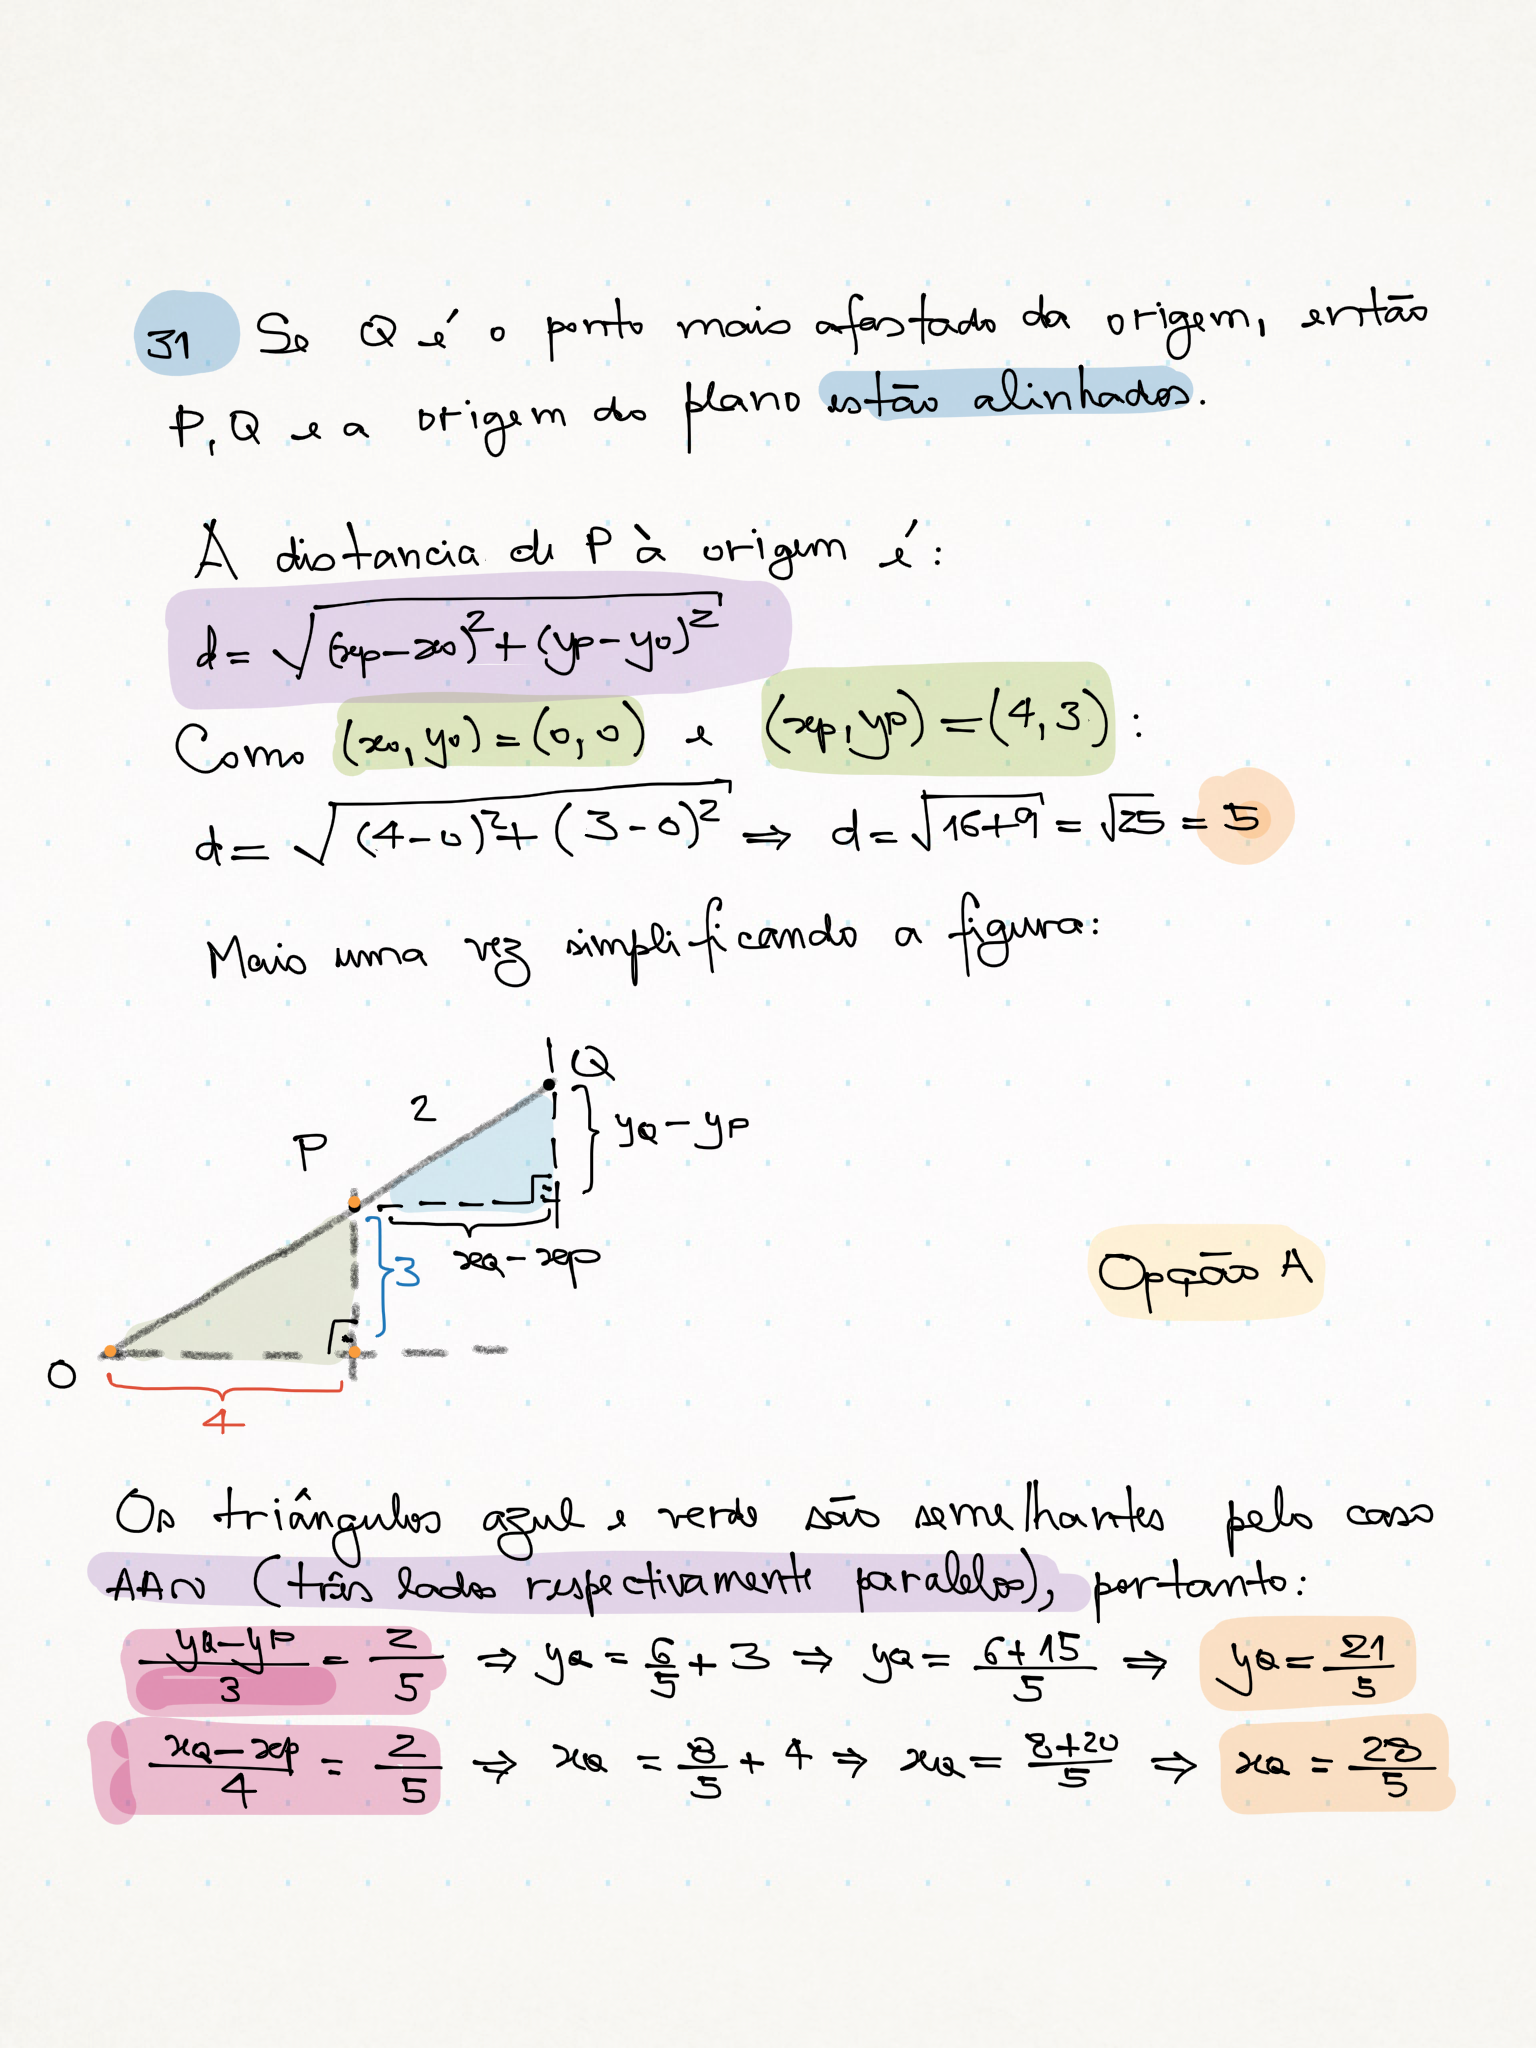 31 Se Q é o ponto mais afastado da origem, então
P, Q e a origem do plano estão alinhados.
A distancia de P à origem é:
d = √((xp - xo)² + (yp - yo)²)
Como (xo, yo) = (0, 0) e (xp, yp) = (4, 3) :
d = √((4-0)² + (3-0)²) ⇒ d = √(16+9) = √25 = 5
Mais uma vez simplificando a figura:
Q
2
yQ - yP
P
xQ - xp
3
Opção A
O
4
Os triângulos azul e verde são semelhantes pelo caso
AAA (três lados respectivamente paralelos), portanto:
(yQ - yP)/3 = 2/5 ⇒ yQ = 6/5 + 3 ⇒ yQ = (6+15)/5 ⇒ yQ = 21/5
(xQ - xp)/4 = 2/5 ⇒ xQ = 8/5 + 4 ⇒ xQ = (8+20)/5 ⇒ xQ = 28/5